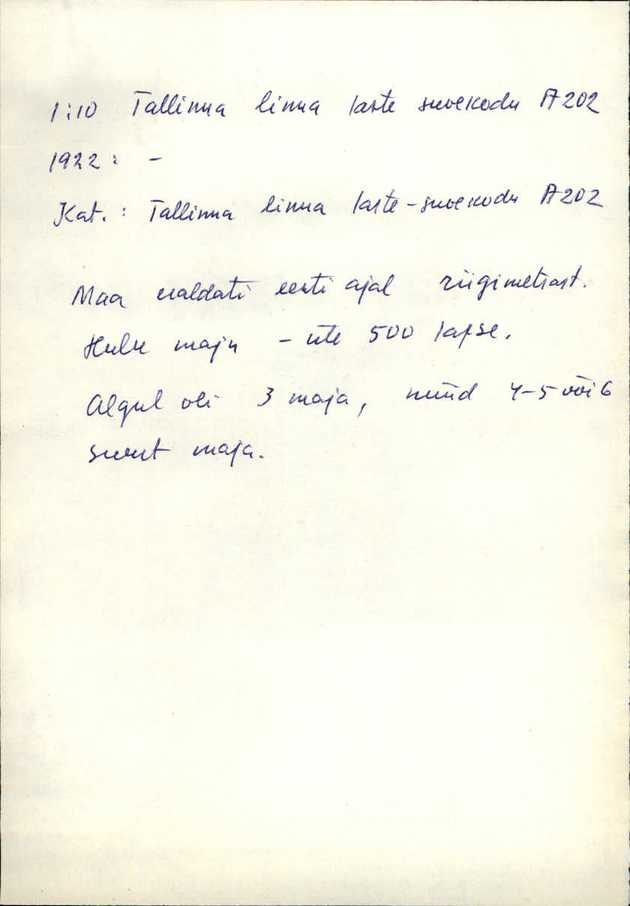 1:10 Tallinna linna laste suvekodu A202
1922: -
Kat.: Tallinna linna laste-suvekodu A202
Maa eraldati eesti ajal riigimetsast.
Hulk maju - üle 500 lapse.
Algul oli 3 maja, nüüd 4-5 või 6
suurt maja.